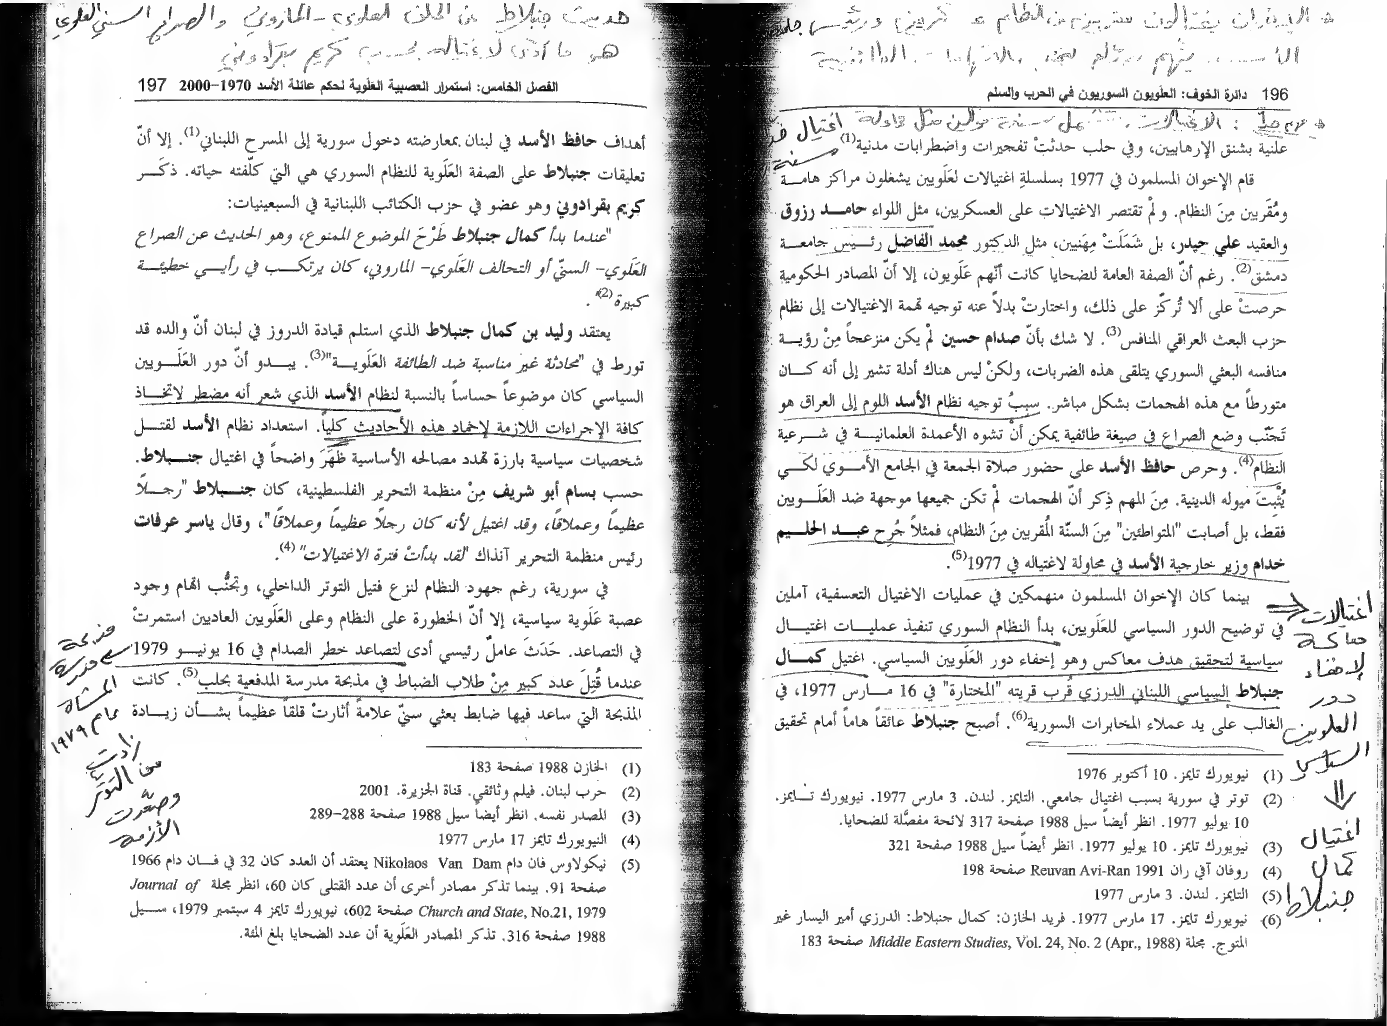 196 دائرة الخوف: العلويون السوريون في الحرب والسلم
علنية بشنق الإرهابيين، وفي حلب حدثتْ تفجيرات واضطرابات مدنية(1)
قام الإخوان المسلمون في 1977 بسلسلةِ اغتيالات لعَلَويين يشغلون مراكز هامـــة
ومُقَربين مِنَ النظام. ولمْ تقتصر الاغتيالات على العسكريين، مثل اللواء حامــد رزوق
والعقيد علي حيدر، بل شَمَلَتْ مِهَنيين، مثل الدكتور محمد الفاضل رئــيس جامعــة
دمشق(2). رغم أنّ الصفة العامة للضحايا كانت أنّهم عَلَويون، إلا أنّ المصادر الحكومية
حرصتْ على ألا تُركّز على ذلك، واختارتْ بدلاً عنه توجيه تهمة الاغتيالات إلى نظام
حزب البعث العراقي المنافس(3). لا شك بأنّ صدام حسين لمْ يكن منزعجاً مِنْ رؤيــة
منافسه البعثي السوري يتلقى هذه الضربات، ولكنْ ليس هناك أدلة تشير إلى أنه كــان
متورطاً مع هذه الهجمات بشكل مباشر. سببُ توجيه نظام الأسد اللوم إلى العراق هو
تَجَنّب وضع الصراع في صيغة طائفية يمكن أنْ تشوه الأعمدة العلمانيــة في شــرعية
النظام(4). وحرص حافظ الأسد على حضور صلاة الجمعة في الجامع الأمــوي لكــي
يُثْبِتَ ميوله الدينية. مِنَ المهم ذِكر أنّ الهجمات لمْ تكن جميعها موجهة ضد العَلَــويين
فقط، بل أصابت "المتواطئين" مِنَ السنّة المُقربين مِنَ النظام، فمثلاً جُرح عبــد الحلــيم
خدام وزير خارجية الأسد في محاولة لاغتياله في 1977(5).
بينما كان الإخوان المسلمون منهمكين في عمليات الاغتيال التعسفية، آملين
في توضيح الدور السياسي للعَلَويين، بدأ النظام السوري تنفيذ عمليــات اغتيــال
سياسية لتحقيق هدف معاكس وهو إخفاء دور العَلَويين السياسي. اغتيل كمــال
جنبلاط السياسي اللبناني الدرزي قُرب قريته "المختارة" في 16 مــارس 1977، في
الغالب على يد عملاء المخابرات السورية(6). أصبح جنبلاط عائقاً هاماً أمام تحقيق
(1) نيويورك تايمز. 10 أكتوبر 1976
(2) توتر في سورية بسبب اغتيال جامعي. التايمز. لندن. 3 مارس 1977. نيويورك تــايمز.
10 يوليو 1977. انظر أيضاً سيل 1988 صفحة 317 لائحة مفصَّلة للضحايا.
(3) نيويورك تايمز. 10 يوليو 1977. انظر أيضاً سيل 1988 صفحة 321
(4) روفان آفي ران Reuvan Avi-Ran 1991 صفحة 198
(5) التايمز. لندن. 3 مارس 1977
(6) نيويورك تايمز. 17 مارس 1977. فريد الخازن: كمال جنبلاط: الدرزي أمير اليسار غير
المتوج. مجلة Middle Eastern Studies, Vol. 24, No. 2 (Apr., 1988) صفحة 183
اغتيالات
معاكسة
لإخفاء
دور
العلويين
السياسي
اغتيال
كمال
جنبلاط
هو ما أدى لاغتياله بحسب كريم بقرادوني
الفصل الخامس: استمرار العصبية العَلَوية لحكم عائلة الأسد 1970-2000 197
أهداف حافظ الأسد في لبنان بمعارضته دخول سورية إلى المسرح اللبناني(1). إلا أنّ
تعليقات جنبلاط على الصفة العَلَوية للنظام السوري هي التي كلّفته حياته. ذكــر
كريم بقرادوني وهو عضو في حزب الكتائب اللبنانية في السبعينيات:
"عندما بدأ كمال جنبلاط طَرْحَ الموضوع الممنوع، وهو الحديث عن الصراع
العَلَوي- السنّي أو التحالف العَلَوي- الماروني، كان يرتكــب في رأيــي خطيئــة
كبيرة(2)".
يعتقد وليد بن كمال جنبلاط الذي استلم قيادة الدروز في لبنان أنّ والده قد
تورط في "محادثة غير مناسبة ضد الطائفة العَلَويــة"(3). يبــدو أنّ دور العَلَــويين
السياسي كان موضوعاً حساساً بالنسبة لنظام الأسد الذي شعر أنه مضطر لاتخــاذ
كافة الإجراءات اللازمة لإخماد هذه الأحاديث كلياً. استعداد نظام الأسد لقتــل
شخصيات سياسية بارزة تهدد مصالحه الأساسية ظَهَرَ واضحاً في اغتيال جنــبلاط.
حسب بسام أبو شريف مِنْ منظمة التحرير الفلسطينية، كان جنــبلاط "رجــلاً
عظيماً وعملاقا، وقد اغتيل لأنه كان رجلاً عظيماً وعملاقا"، وقال ياسر عرفات
رئيس منظمة التحرير آنذاك "لقد بدأتْ فترة الاغتيالات" (4).
في سورية، رغم جهود النظام لنزع فتيل التوتر الداخلي، وتجنُّب اتهام وجود
عصبة عَلَوية سياسية، إلا أنّ الخطورة على النظام وعلى العَلَويين العاديين استمرتْ
في التصاعد. حَدَثَ عاملٌ رئيسي أدى لتصاعد خطر الصدام في 16 يونيــو 1979
عندما قُتِلَ عدد كبير مِنْ طلاب الضباط في مذبحة مدرسة المدفعية بحلب(5). كانت
المذبحة التي ساعد فيها ضابط بعثي سنّي علامةً أثارتْ قلقاً عظيماً بشــأن زيــادة
(1) الخازن 1988 صفحة 183
(2) حرب لبنان. فيلم وثائقي. قناة الجزيرة. 2001
(3) المصدر نفسه. انظر أيضاً سيل 1988 صفحة 288-289
(4) النيويورك تايمز 17 مارس 1977
(5) نيكولاوس فان دام Nikolaos Van Dam يعتقد أن العدد كان 32 في فــان دام 1966
صفحة 91. بينما تذكر مصادر أخرى أن عدد القتلى كان 60، انظر مجلة Journal of
Church and State, No.21, 1979 صفحة 602، نيويورك تايمز 4 سبتمبر 1979، ســيل
1988 صفحة 316. تذكر المصادر العَلَوية أن عدد الضحايا بلغ المئة.
مذبحة
مدرسة
عام ١٩٧٩
زادت
من التوتر
وصعّدت
الأزمة